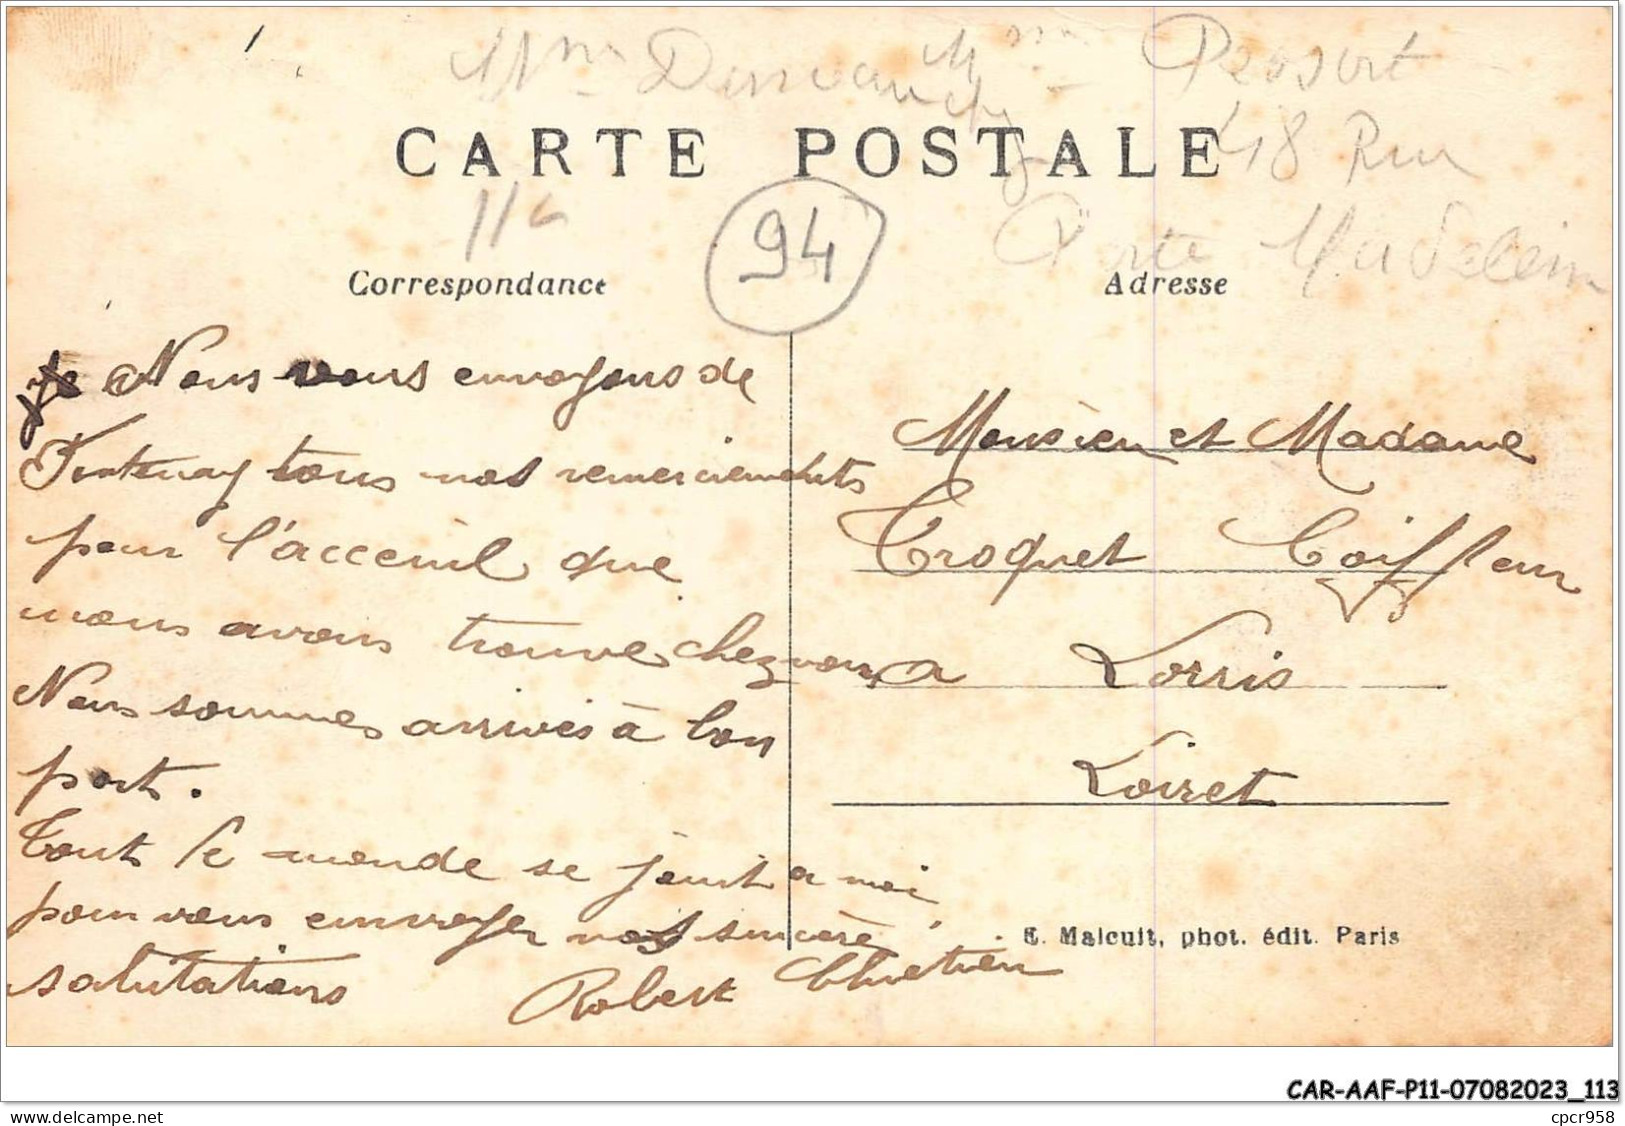 CARTE POSTALE
116
94
18 Rue
Porte Madeleine
Correspondance
Adresse
Nous vous envoyons de
Fontenay tous nos remerciements
pour l'acceuil que
nous avons trouvé chez vous a
Nous sommes arrivés à bon
port.
Tout le monde se joint a moi
pour vous envoyer nos sincère
salutations
Robert Chretien
Monsieur et Madame
Croquet Coiffeur
Lorris
Loiret
E. Malcuit, phot. édit. Paris
CAR-AAF-P11-07082023_113
www.delcampe.net
cpcr958